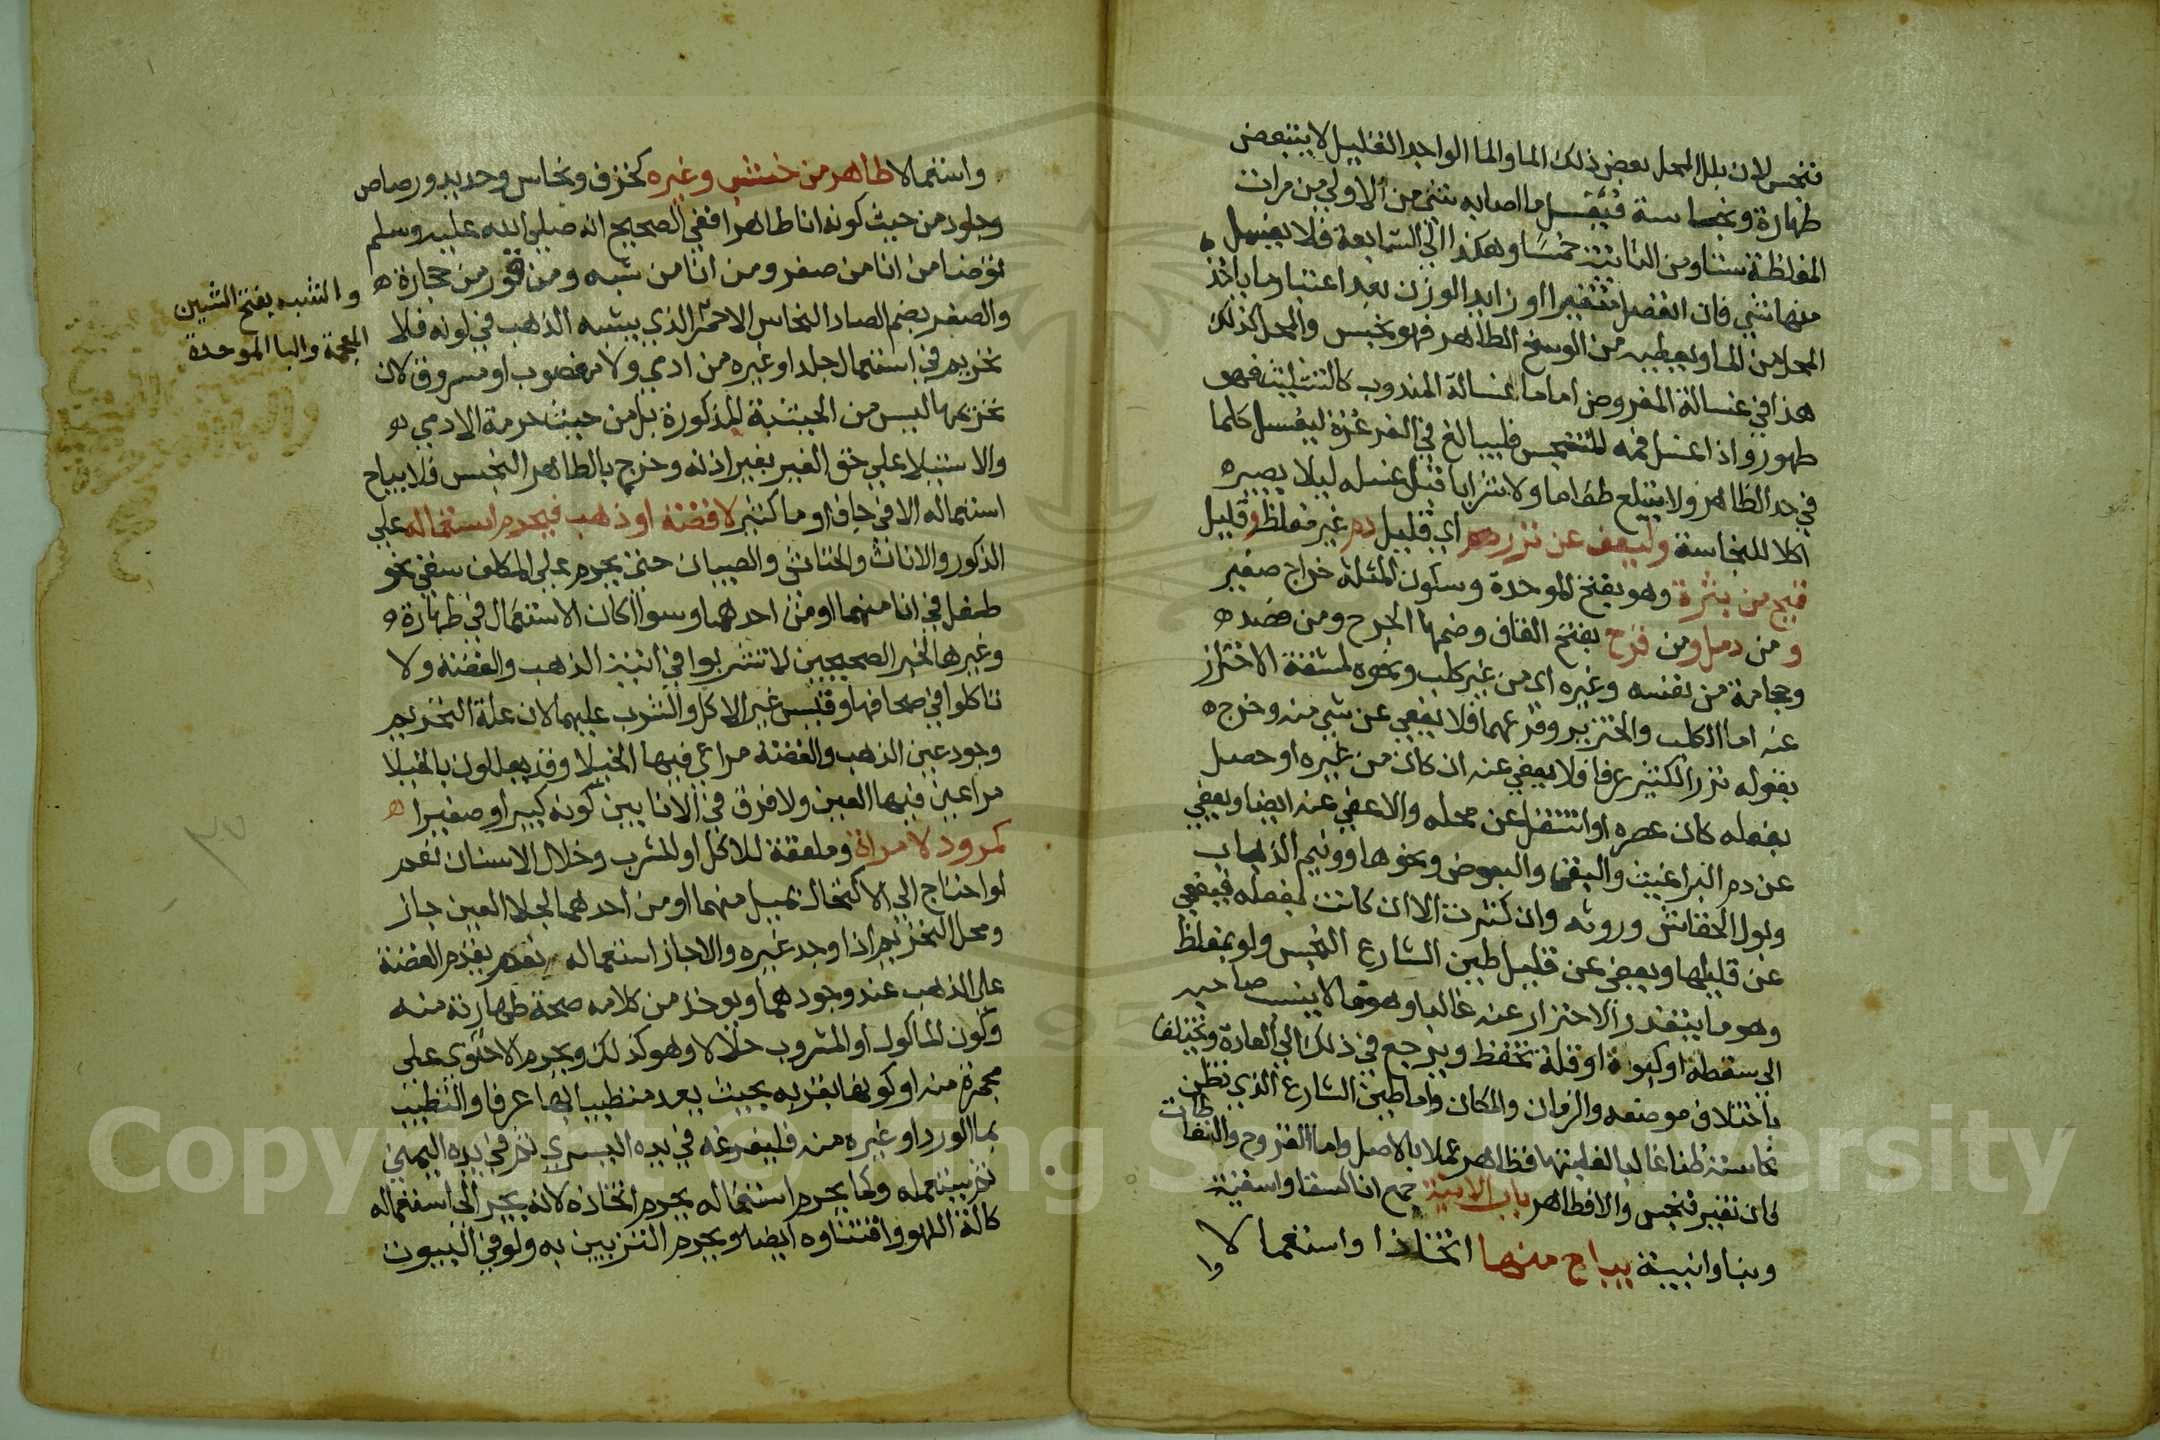 فنجس لان بلل المحل بعض ذلك الما والما الواحد القليل لا يتبعض
طهارة ونجاسة فيغسل ما اصابه شي من الاولي من مرات
المغلظة ستا ومن الثانية خمسا وهكذا الي السابعة فلا يغسل
منها شي فان انفصل متغيرا او زايد الوزن بعد اعتبار ما ياخذ
المحل من الما ويعطيه من الوسخ الطاهر فهو نجس والمحل كذلك
هذا في غسالة المفروض اما ما غسالة المندوب كالتثليث فهو
طهور واذا غسل فمه المتنجس فليبالغ في الغرغرة ليغسل كلما
في حد الظاهر ولا يبتلع طعاما ولا شرابا قبل غسله ليلا يصير
اكلا للنجاسة وليعف عن نزر دم اي قليل دم غير مغلظ وقليل
قيح من بثرة وهو بفتح الموحدة وسكون المثلثة خراج صغير
و من دمل ومن قرح بفتح القاف وضمها الجرح ومن فصده
وحجامة من نفسه وغيره اي من غير كلب ونحوه لمشقة الاحتراز
عنه اما الكلب والخنزير وفرعهما فلا يعفي عن شي منه وخرج
بقوله نزر الكثير عرفا فلا يعفي عنه ان كان من غيره او حصل
بفعله كان عصره او انتقل عن محله والا عفي عنه ايضا ويعفي
عن دم البراغيث والبق والبعوض ونحوها وونيم الذباب
وبول الخفاش وروثه وان كثرت الا ان كانت بفعله فيعفي
عن قليلها ويعفي عن قليل طين الشارع النجس ولو بمغلظ
وهو ما يتعذر الاحتراز عنه غالبا وهو ما لا ينسب صاحبه
الي سقطة او كبوة او قلة تحفظ ويرجع في ذلك الي العادة ويختلف
باختلاف موضعه والزمان والمكان واما طين الشارع الذي تظن
نجاسته ظنا غالبا لغلبتها فطاهر عملا بالاصل واما القروح والنفاطات
فان تغير فنجس والا فطاهر باب الانية جمع انا كسقا واسقية
وبنا وابنية يباح منها اتخاذا واستعمالا
وا
واستعمالا طاهر من خشب وغيره كخزف ونحاس وحديد ورصاص
وجلود من حيث كونه انا طاهرا ففي الصحيح انه صلي الله عليه وسلم
توضا من انا من صفر ومن انا من شبه ومن تور من حجارة
والصفر بضم الصاد النحاس الاحمر الذي يشبه الذهب في لونه فلا
تحريم في استعمال جلد او غيره من ادمي ولا مغصوب او مسروق لان
تحريمها ليس من الحيثية المذكورة بل من حيث حرمة الادمي
والاستيلا علي حق الغير بغير اذنه وخرج بالطاهر النجس فلا يباح
استعماله الا في جاف او ما كثير لا فضة او ذهب فيحرم استعماله علي
الذكور والاناث والخناثي والصبيان حتي يحرم علي المكلف سقي نحو
طفل في انا منهما او من احدهما وسوا اكان الاستعمال في طهارة
وغيرها لخبر الصحيحين لا تشربوا في انية الذهب والفضة ولا
تاكلوا في صحافها وقيس غير الاكل والشرب عليهما لان علة التحريم
وجود عين الذهب والفضة مراعي فيها الخيلا وقد يعللون بالخيلا
مراعين فيها العين ولا فرق في الانا بين كونه كبيرا وصغيرا
كمرود لامراة وملعقة للاكل او لشرب وخلال الاسنان نعم
لو احتاج الي الاكتحال بميل منهما او من احدهما لجلا العين جاز
ومحل التحريم اذا وجد غيره والا جاز استعماله نعم يقدم الفضة
علي الذهب عند وجودهما ويوخذ من كلامه صحة طهارته منه
وكون الماكول او المشروب حلالا وهو كذلك ويحرم الاحتوي علي
مجمرة منه او كونها بقربه بحيث يعد متطيبا بها عرفا والتطييب
بما الورد او غيره منه فليفرغه في يده اليسري ثم في يده اليمني
ثم يستعمله وكما يحرم استعماله يحرم اتخاذه لانه يجر الي استعماله
كالة اللهو واقتناوه ايضا ويحرم التزيين به ولو في البيوت
والشبه بفتح الشين
المعجمة والبا الموحدة
Copyright © King Saud University